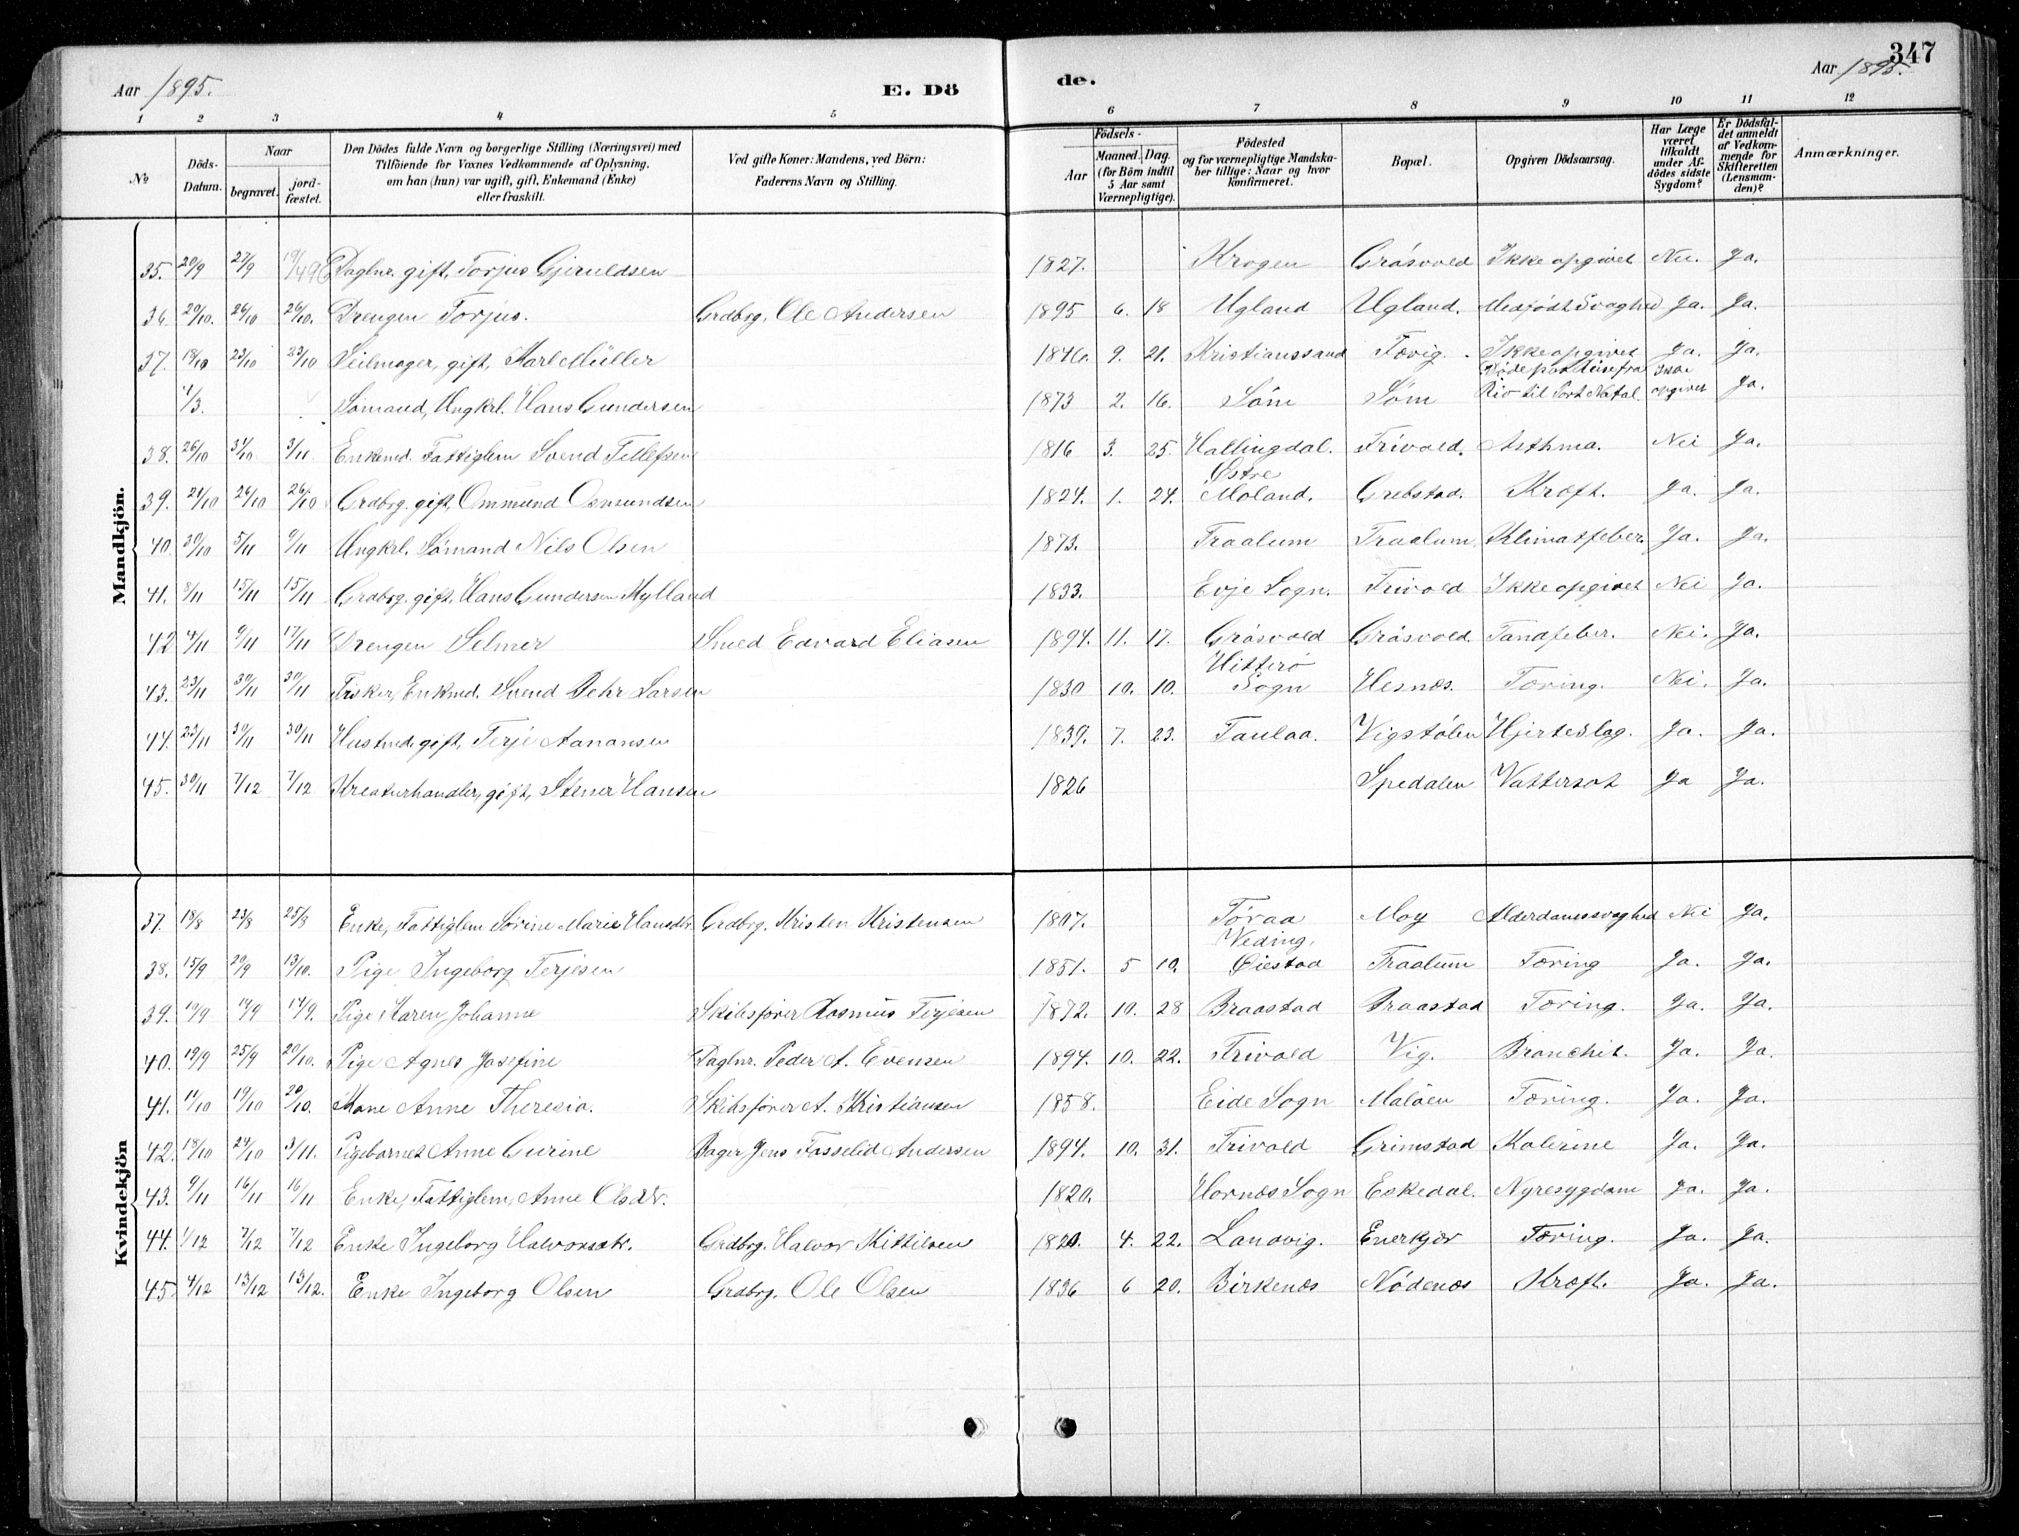 347
Aar 1895. E. Dö de. Aar 1895.
1 2 3 4 5 6 7 8 9 10 11 12
No Döds-Datum. Naar begravet. jord-fæstet. Den Dödes fulde Navn og borgerlige Stilling (Næringsvei) med Tilföiende for Voxnes Vedkommende af Oplysning, om han (hun) var ugift, gift, Enkemand (Enke) eller fraskilt. Ved gifte Koner: Mandens, ved Börn: Faderens Navn og Stilling. Födsels- Aar Maaned. Dag. (for Börn indtil 5 Aar samt Værnepligtige). Födested og for værnepligtige Mandskaber tillige: Naar og hvor konfirmeret. Bopæl. Opgiven Dödsaarsag. Har Læge været tilkaldt under Afdödes sidste Sygdom? Er Dödsfaldet anmeldt af Vedkommende for Skifteretten (Lensmanden)? Anmærkninger.
Mandkjön.
35. 20/9 27/9 Daglnr. gift, Torjus Gjeruldsen 1827. Krogen Gråsvold Ikke opgivet Nei. Ja.
36 20/10. 26/10 26/10. Drengen Torjus. Grdbrg. Ole Andersen 1895 6. 18 Ugland Ugland. Medfödt Svaghed Ja. Ja.
37. 18/10 23/10 23/10 Seilmager, gift, Karl Müller 1846. 9. 21. Kristianssand Fævig. Ikke opgivet Ja. Ja.
4/3. Sömand, Ungkrl. Hans Gundersen 1873 2. 16. Söm Söm Døde paa Reise fra Rio til Port Natal. opgivet Ja.
38. 26/10 31/10 3/11 Enkemd. Fattiglem Svend Tellefsen 1816 3. 25. Hallingdal. Frivold. Asthma. Nei Ja.
39. 21/10 26/10 26/10 Grdbrg. gift, Ommund Osmundsen 1824. 1. 24. Østre Moland. Grebstad. Kræft. Ja. Ja.
40. 30/10 5/11 9/11 Ungkrl. Sömand Nils Olsen 1873. Traalum Traalum. Klimatfeber. Ja. Ja.
41. 8/11 15/11 15/11 Grdbrg. gift, Hans Gundersen Mylland 1833. Evje Sogn. Frivold Ikke opgivet Nei Ja.
42 4/11 9/11 17/11 Drengen Selmer Smed Edvard Eliasen 1894. 11. 17. Gråsvold Gråsvold. Tandfeber. Nei. Ja.
43. 23/11 30/11 30/11 Fisker, Enkmd. Svend Behr Larsen 1830 10. 10. Hitterö Sogn Hesnes. Tæring. Nei. Ja.
44. 23/11 30/11 30/11 Husmd. gift, Terje Aanonsen 1839. 7. 23. Taulaa. Vigstölen Hjerteslag. Ja. Ja.
45. 30/11 7/12 7/12 Kreaturhandler, gift, Stener Hansen 1826 Spedalen Vattersot Ja Ja.
Kvindekjön
37. 18/8 23/8 25/8 Enke, Fattiglem Sörine Marie Hansdtr. Grdbrg. Kristen Kristensen 1807. Töraa Moy Alderdomssvaghed Nei Ja.
38. 15/9 20/9 13/10. Pige Ingeborg Terjesen 1851. 5 10. Veding, Öiestad Traalum Tæring Ja. Ja.
39. 10/9 14/9 14/9. Pige Karen Johanne Skibsförer Rasmus Terjesen 1872. 10. 28 Braastad Braastad Tæring. Ja. Ja.
40. 19/9 25/9 20/10. Pige Agnes Josefine Daglnr. Peder A. Evensen 1894. 10. 22. Frivold Vig. Bronchit. Ja. Ja.
41. 11/10 19/10 20/10. Kone Anne Theresia. Skibsförer A. Kristiansen 1858. Eide Sogn Malöen Tæring. Ja. Ja.
42. 18/10 24/10 3/11. Pigebarnet Anne Gurine Bager Jens Fasselid Andersen 1894. 10. 31. Frivold Grimstad Kolerine Ja. Ja.
43. 9/11 16/11 16/11 Enke, Fattiglem, Anne Olsdtr. 1820. Hornes Sogn Eskedal. Nyresygdom Ja. Ja.
44. 1/12 7/12 7/12 Enke Ingeborg Halvorsdtr. Grdbrg. Halvor Kittilsen 4. 22. Landvig. Enerkjær Tæring. Ja. Ja.
45. 4/12 13/12 13/12. Enke Ingeborg Olsen Grdbrg. Ole Olsen 1836 6 20. Birkenes Nödenes Kræft. Ja. Ja.